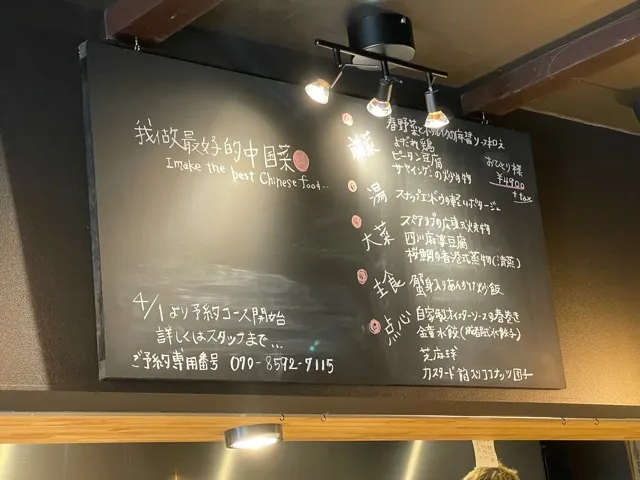 我做最好的中国菜
I make the best Chinese food…
4/1より予約コース開始
詳しくはスタッフまで…
ご予約専用番号 070-8592-7115
菜
春野菜と の麻醤ソース和え
よだれ鶏
ピータン豆腐
サヤインゲンの炒め物
おひとり様
¥4900
+tax
湯 スナップエンドウの軽いポタージュ
大菜 スペアリブの広東式炒め物
四川麻婆豆腐
桜鯛の香港式蒸し物(清蒸)
主食 蟹身入りあんかけ炒飯
点心 自家製オイスターソースの春巻き
水餃
芝麻球
カスタード餡入りココナッツ団子